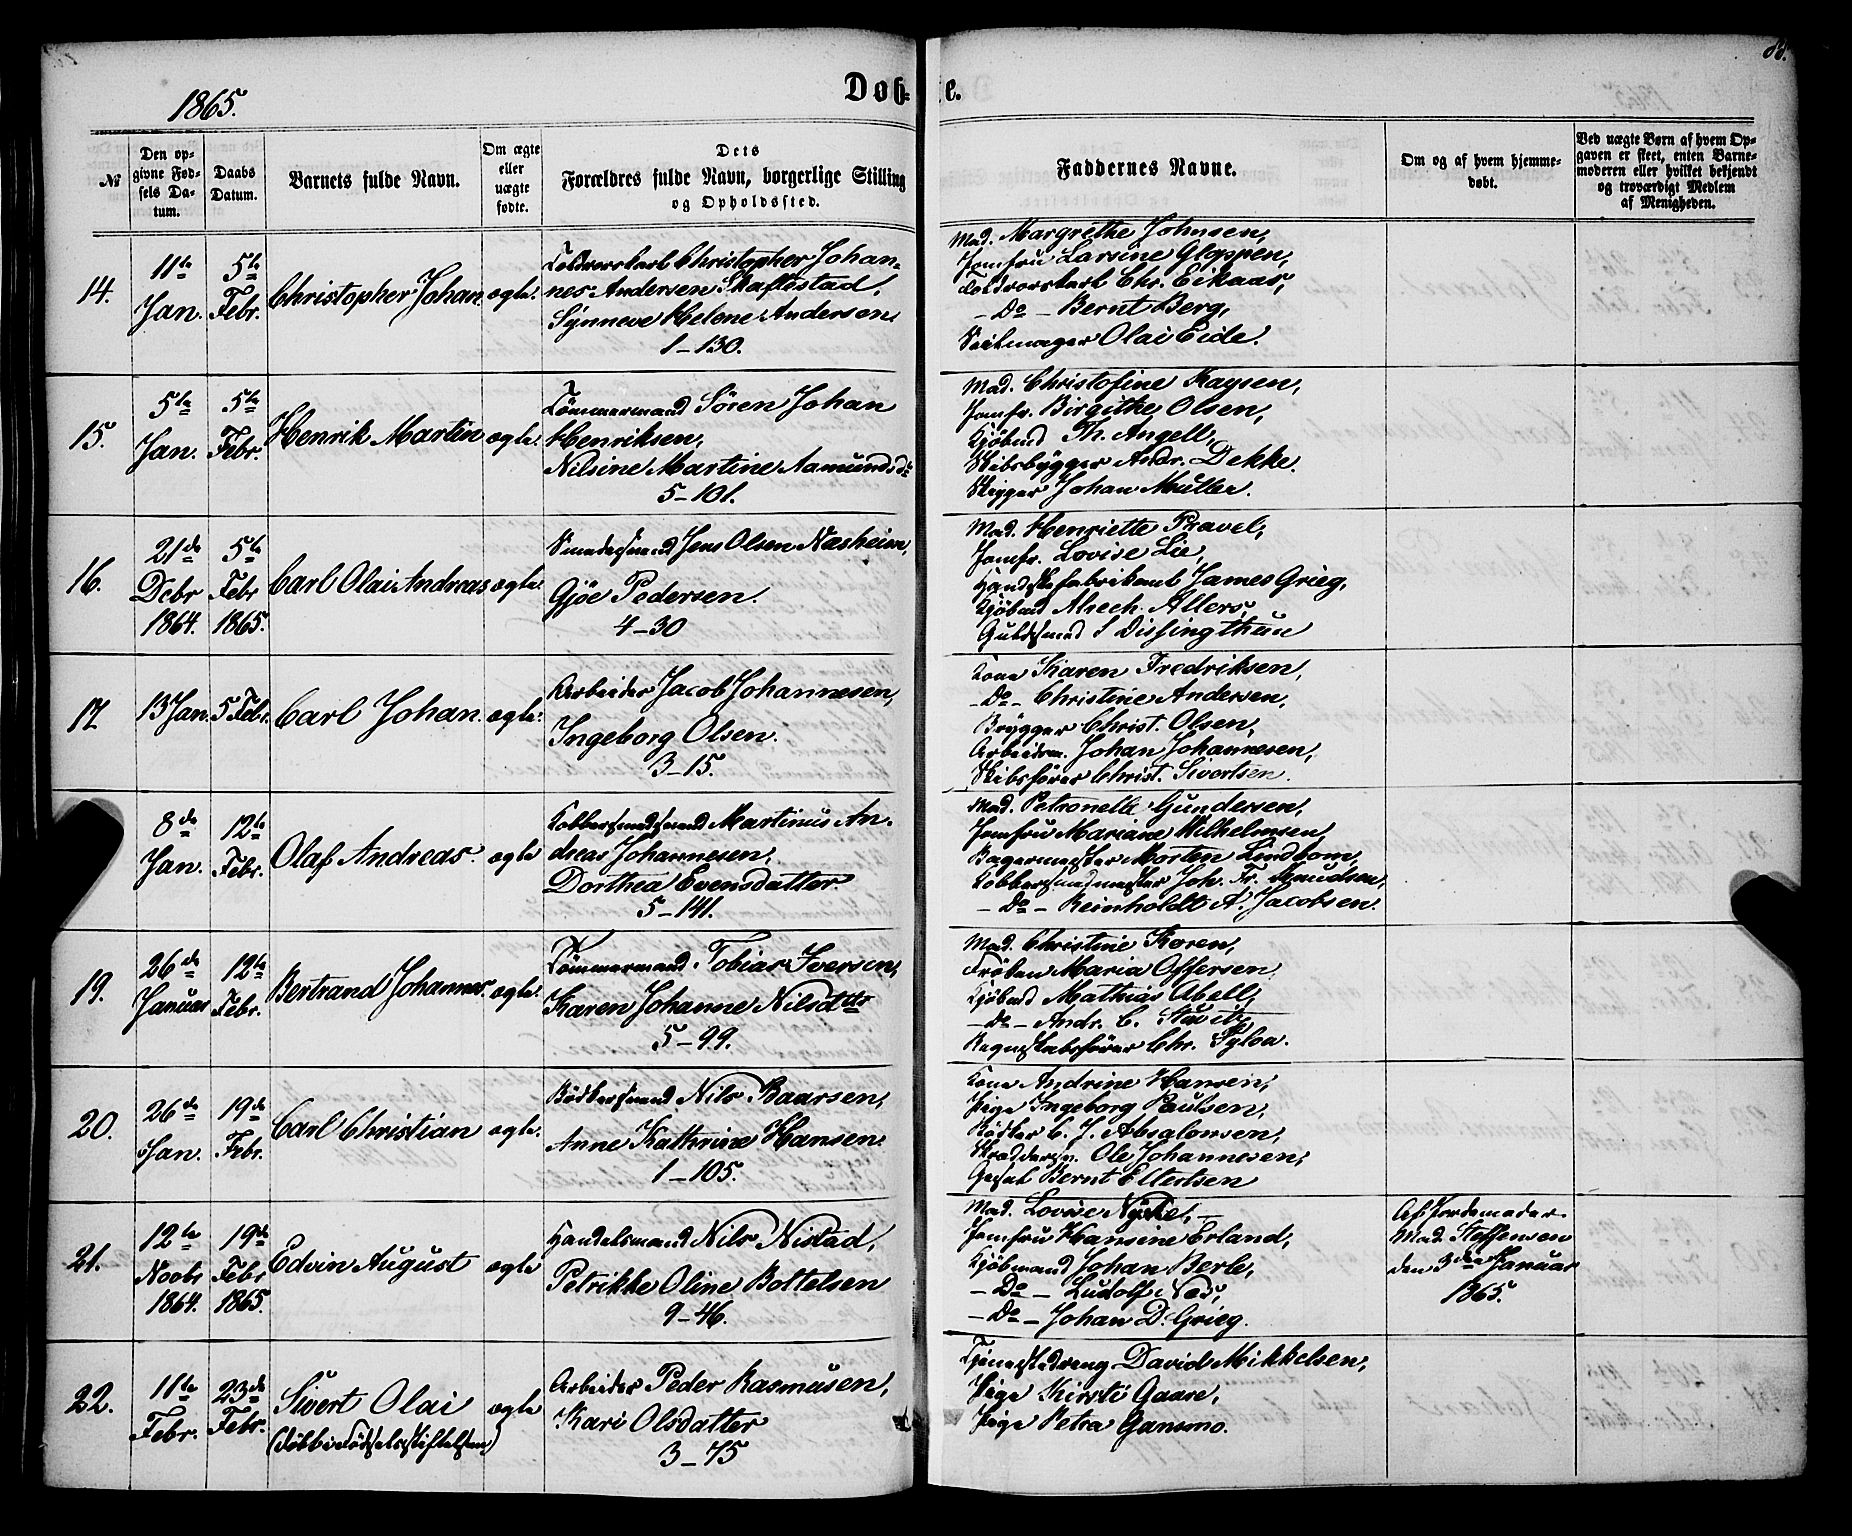 1865.
Døb-te.
88.
№
Den opgivne Fødsels Datum.
Daabs Datum.
Barnets fulde Navn.
Om ægte eller uægte fødte.
Dets Forældres fulde Navn, borgerlige Stilling og Opholdssted.
Faddernes Navne.
Om og af hvem hjemmedøbt.
Ved uægte Børn af hvem Opgaven er skeet, enten Barnemoderen eller hvilket bekjendt og troværdigt Medlem af Menigheden.
14.
11te Jan.
5te Febr.
Christopher Johan.
ægte.
Christopher Johan-
nes Andersen Skaftestad,
Synneve Helene Andersen.
1-130.
Mad. Margrethe Johnsen,
Jomfru Larsine Gloppen,
Chr. Eikaas,
- Do - Bernt Berg,
Seilmager Olai Eide.
15.
5te Jan.
5te Febr.
Henrik Martin
ægte.
Tømmermand Sören Johan
Henriksen,
Nilsine Martine Aamundsdr
5-101.
Mad. Christofine Kaysen,
Jomfr. Birgitke Olsen,
Kjøbmd Th. Angell,
Skibsbygger Andr. Dekke.
Skipper Johan Müller.
16.
21de Debr 1864.
5te Febr 1865.
Carl Olai Andreas
ægte.
Smedesvend Jens Olsen Næsheim,
Gjøe Pedersen.
4-30
Mad. Henriette Pravel,
Jomfr. Lovise Lie,
Handskefabrikant James Grieg,
Kjøbmd Albech. Allers,
Guldsmed S Dissingthun
17.
13 Jan.
5 Febr.
Carl Johan.
ægte.
Arbeider Jacob Johannesen,
Ingeborg Olsen.
3-15.
Kone Karen Fredriksen,
-Do- Christine Andersen,
Brygger Christ. Olsen,
Arbeidsm. Johan Johannesen,
Skibsfører Christ. Sivertsen.
8de Jan.
12te Febr.
Olaf Andreas.
ægte
Kobbersmedsvend Martinus An-
dreas Johannesen,
Dorthea Evensdatter.
5-141.
Mad. Petronelle Gundersen,
Jomfru Mariane Wilhelmsen,
Bagermester Morten Lindbom,
Kobbersmedmester Joh. Fr. Knudsen,
- Do - Reinholdt A. Jacobsen.
19.
26de Januar
12te Febr.
Bertrand Johannes.
ægte.
Tømmermand Tobias Iversen,
Karen Johanne Nilsdtr
5-99.
Mad. Christine Koren,
Frøken Maria Offersen
Kjøbmd Mathias Abell,
-Do- Andr. C. Stüwitz,
Regnskabsfører Chr. Sylva.
20.
26de Jan.
19de Febr.
Carl Christian
ægte.
Bødkersvend Nils Baarsen,
Anne Kathrine Hansen.
1-105.
Kone Andrine Hansen,
Pige Ingeborg Paulsen,
Bødker C. J. Absalonsen,
Skræddersv. Ole Johannesen,
Gesel Bernt Ellertsen
21.
12te Novbr 1864.
19de Febr 1865.
Edvin August
ægte
Handelsmand Nils Nistad,
Petrikke Oline Bottelsen
9-46.
Mad. Lovise Nycke,
Jomfru Hansine Erland,
Kjøbmand Johan Berle,
- Do - Ludolf Næs,
- Do - Johan D. Grieg.
Af Jordemoder
Mad Steffensen
den 3die Januar
1865.
22.
11te Febr.
23de Febr.
Sivert Olai
(Døbt i Fødselsstiftelsen)
ægte
Arbeider Peder Rasmusen,
Kari Olsdatter
3-75
Tjenestedreng David Mikkelsen,
Pige Kirsti Gaare,
Pige Petra Gansmo.